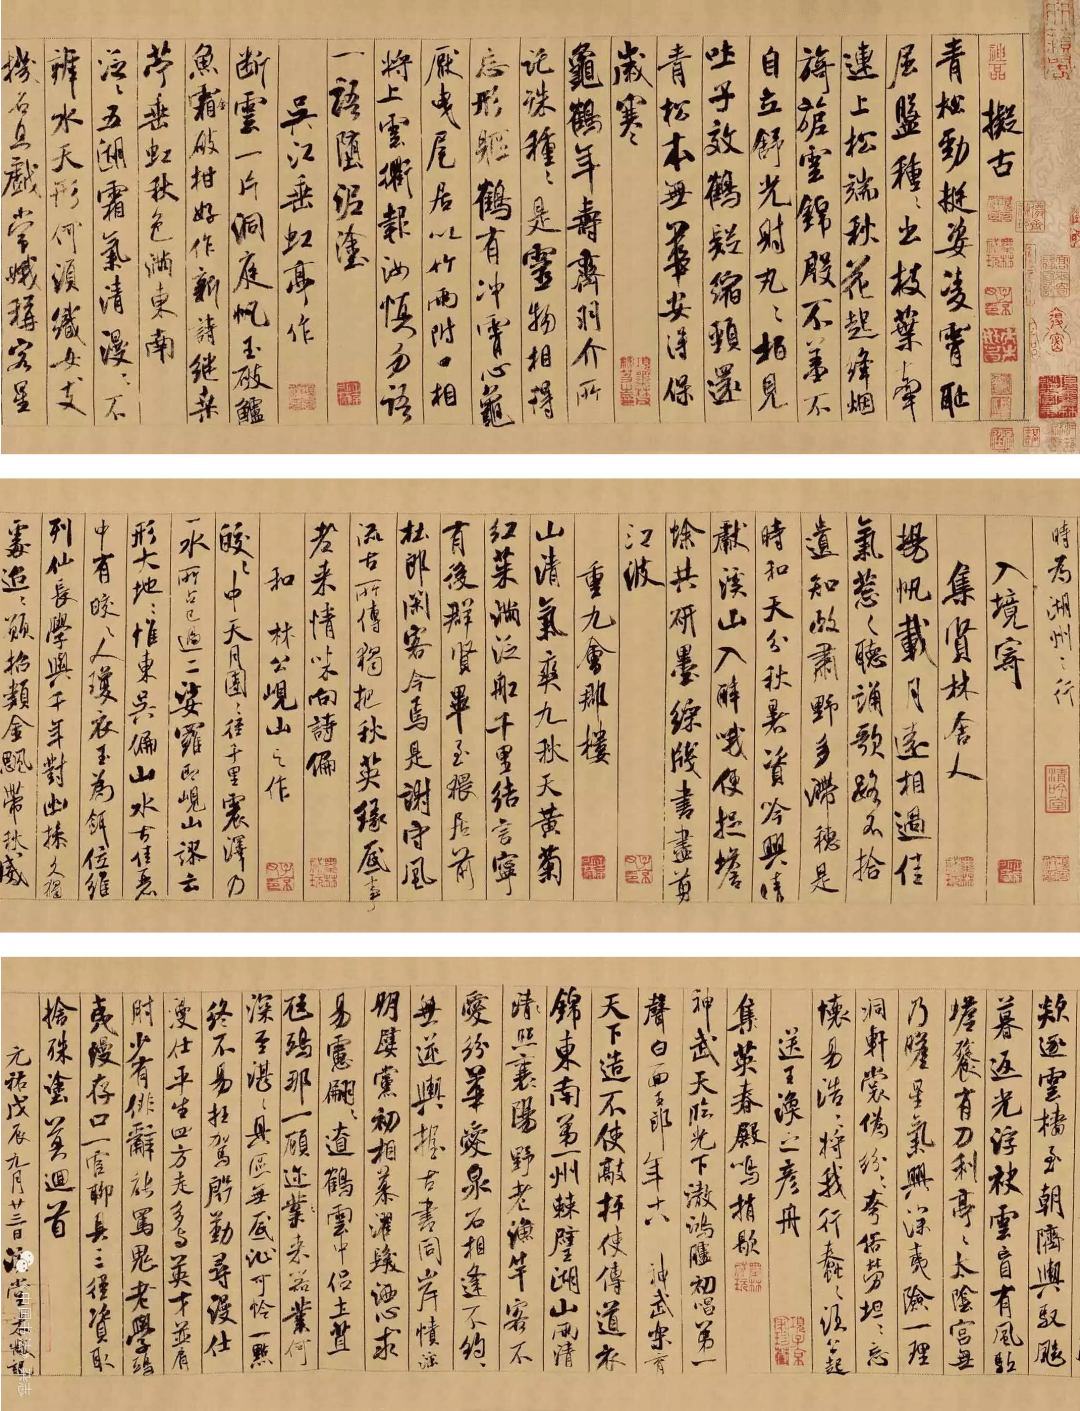 擬古
青松勁挺姿凌霄耻
屈盤種々出枝葉牽
連上松端秋花起絳烟
旖旎雲錦殷不羞不
自立舒光射丸々栢見
吐子效鶴疑縮頸還
青松本無華安得保
歲寒
龜鶴年壽齊羽介所
託殊種々是靈物相得
忘形軀鶴有冲霄心龜
厭曳尾居以竹兩附口相
將上雲衢報汝慎勿語
一語墮泥塗
吳江垂虹亭作
断雲一片洞庭帆玉破鱸
魚霜破柑好作新詩継桑
苧垂虹秋色滿東南
泛々五湖霜氣清漫々不
辨水天形何須織女支
機石且戲常娥稱客星
時為湖州之行
入境寄
集賢林舍人
揚帆載月遠相過佳
氣蔥々聽誦歌路不拾
遺知政肅野多滯穗是
時和天分秋暑資吟興晴
獻溪山入醉哦便捉蟾
蜍共研墨綵牋書盡剪
江波
重九會郡樓
山清氣爽九秋天黃菊
紅茱滿泛船千里結言寧
有後群賢畢至猥居前
杜郎閑客今焉是謝守風
流古所傳獨把秋英緣底事
老來情味向詩偏
和林公峴山之作
皎々中天月團々徑千里震澤乃
一水所占已過二娑羅即峴山謬云
形大地々惟東吳偏山水古佳麗
中有皎々人瓊衣玉為餌位維
列仙長學與千年對幽操久獨
處迢々願招類金飈帶秋威
欻逐雲檣至朝隮輿馭飈
暮返光浮袂雲盲有風馭
蟾餮有刀利亭々太陰宮無
乃瞻星氣興深夷險一理
洞軒裳偽紛々夸俗勞坦々忘
懷易浩々將我行蠢々須公起
送王渙之彥舟
集英春殿鳴捎歇
神武天臨光下澈鴻臚初唱第一
聲白面王郎年十八神武樂育
天下造不使敲枰使傳道衣
錦東南第一州棘璧湖山兩清
照襄陽野老漁竿客不
愛紛華愛泉石相逢不約
無逆輿握古書同岸幘淫
朋嬖黨初相慕濯髮洒心求
易慮翩々遼鶴雲中侶土苴
尫鴟那一顧邇來器業何
深至湛々具區無底沚可憐一點
終不易枉駕殷勤尋漫仕
漫仕平生四方走多与英才並肩
肘少有俳辭能罵鬼老學鴟
夷漫存口一官聊具三徑資取
捨殊塗莫迴首
元祐戊辰九月廿三日溪堂米黻記